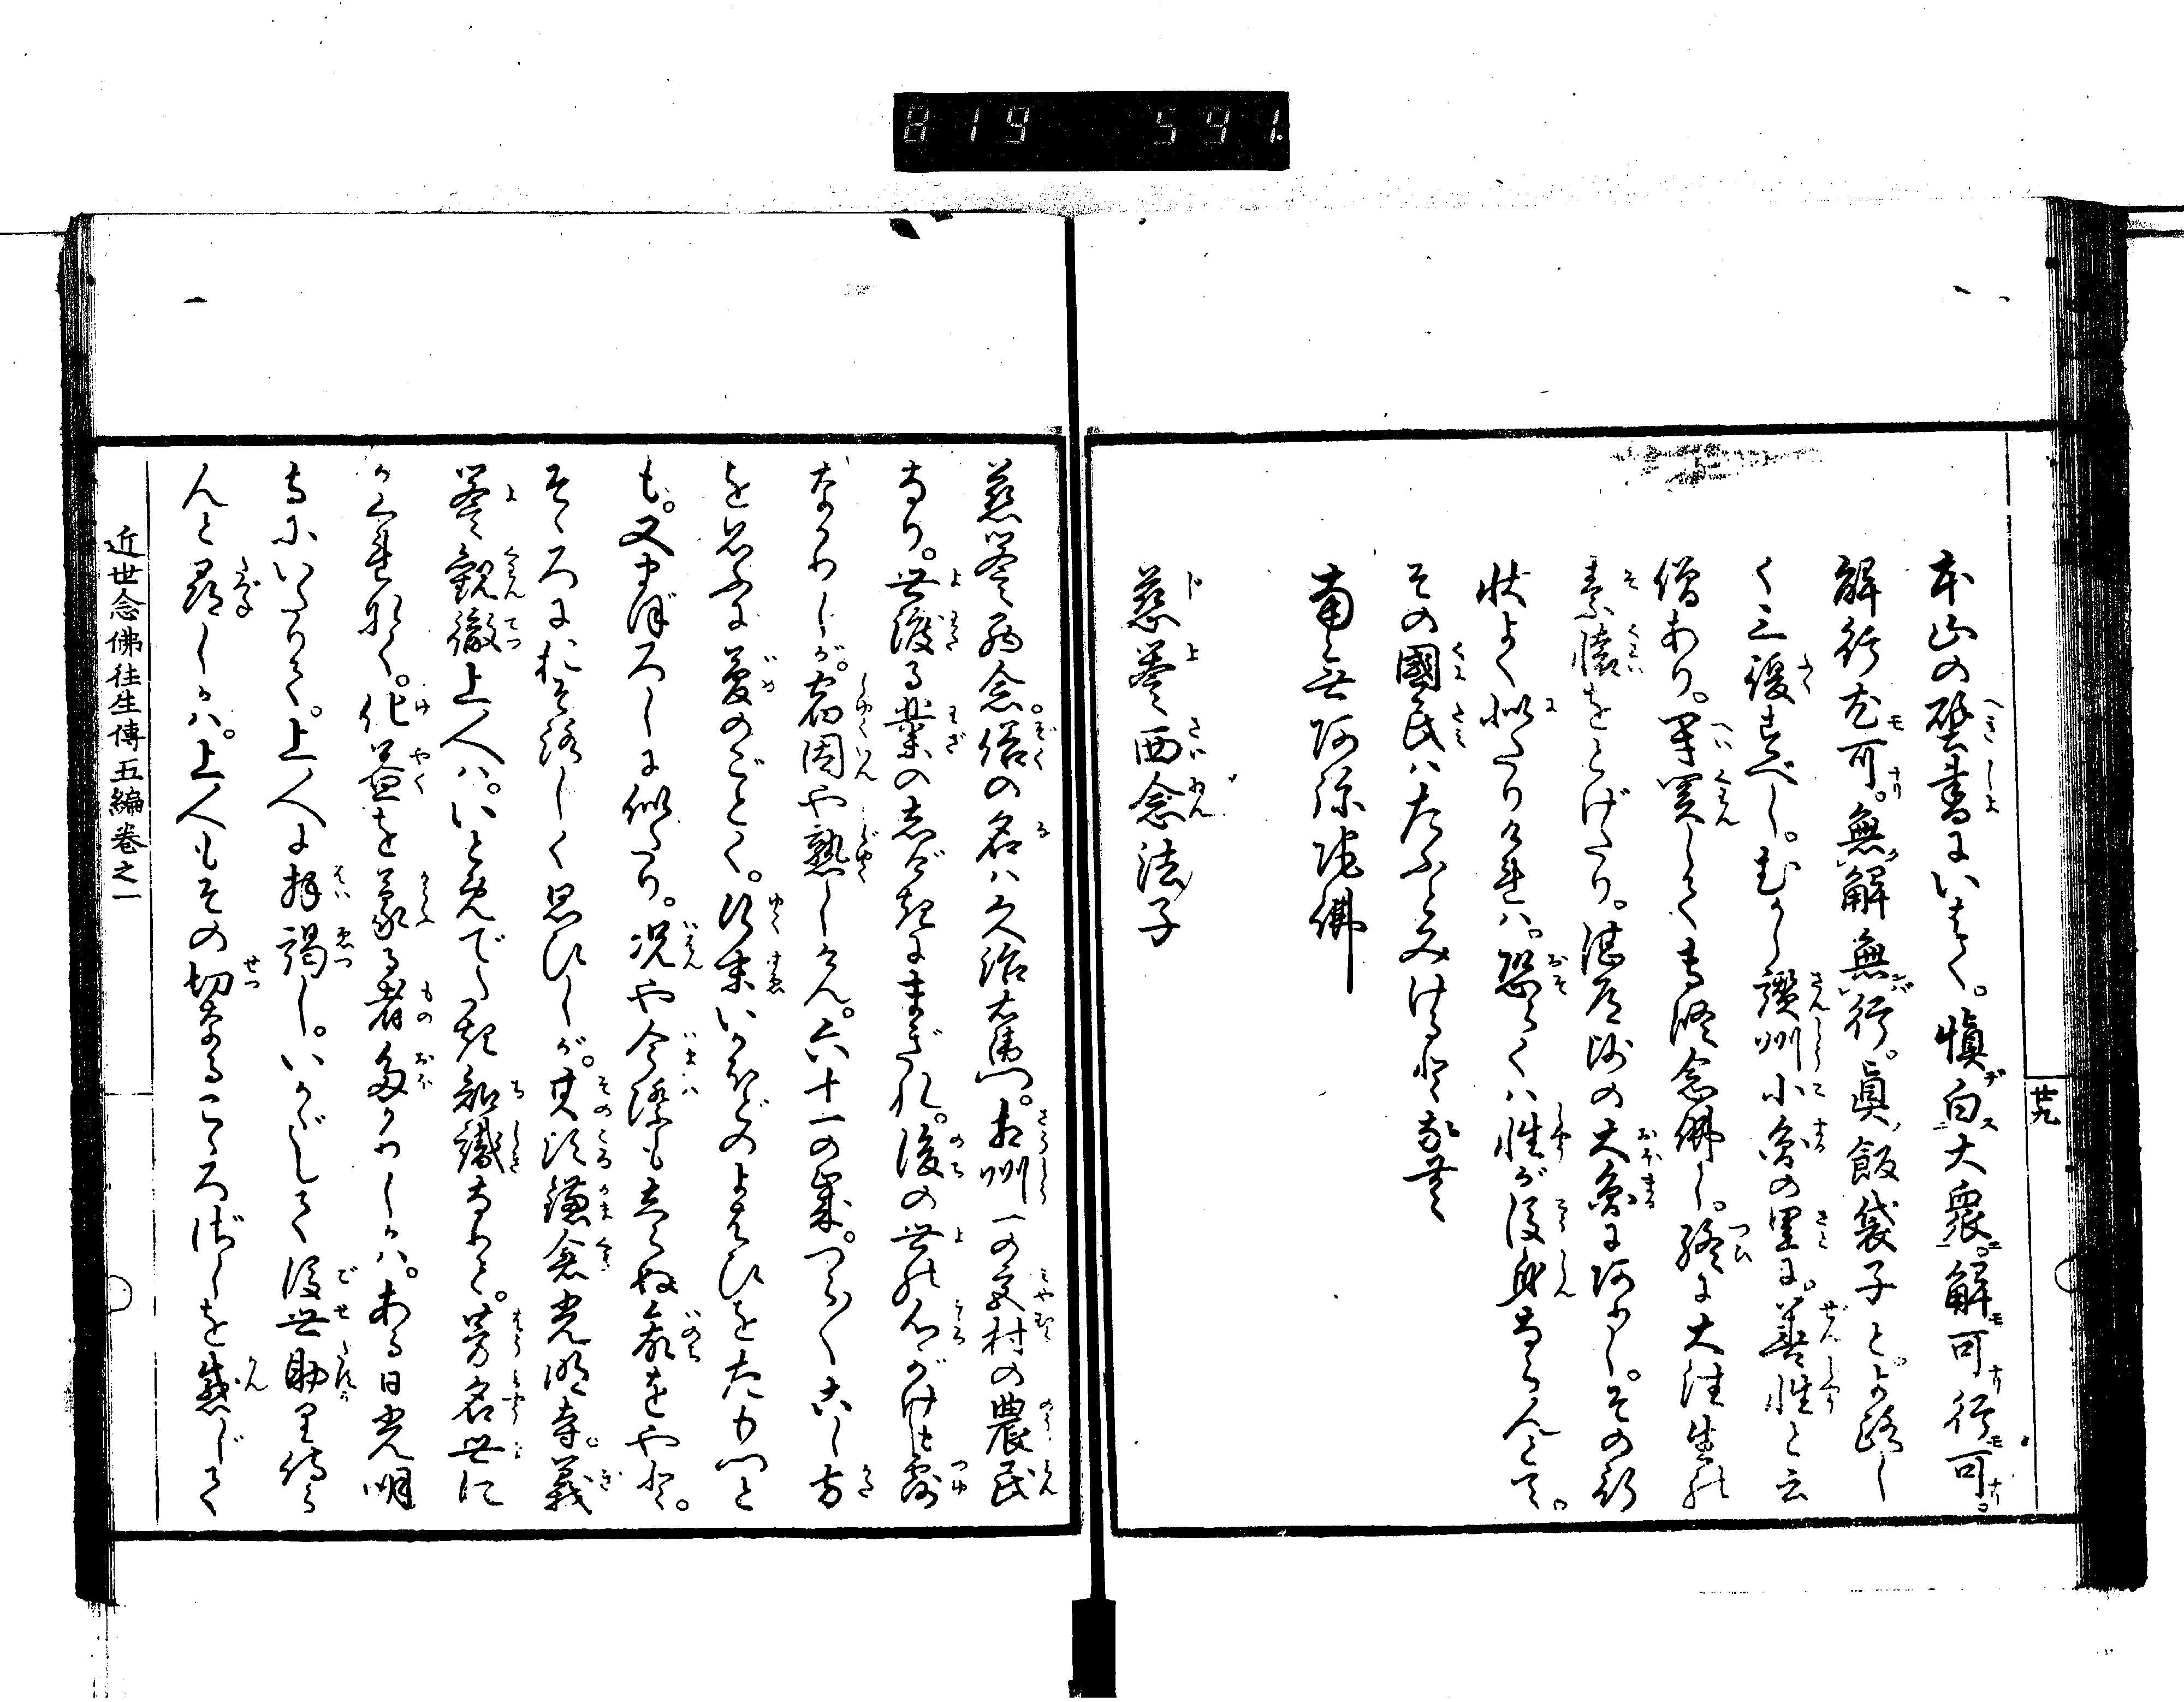 819 591.
廿九
本山の壁書にいはく。愼白大衆。解可行可。
解行尤可。無解無行。眞飯袋子と。よろし
く三復すべし。むかし讃州小魚の里に。善性と云
僧あり。閉関して専修念佛し。終に大往生の
素懐をとげたり。湛
状よく似たりければ。恐らくハ性が後身ならんとて。
その國民ハたふとみけるとかや
南無阿弥陀佛
慈誉西念法子
慈誉西念。俗の名ハ久治右衛門。相州一の宮村の農民
なり。世渡る業の志げきにまぎれ。後の世の心がけ露
なかりしが。宿因や熟しけん。六十一の歳。つらつらこし方
を思ふに夢のごとく。行末いかほどのよはひをたもつと
も。又まぼろしに似たり。况や今際もしらぬ命をやと。
そゞろにおそろしく思ひしが。其頃鎌倉光明寺。義
誉観徹上人ハ。いとめでたき知識なりと。芳名世に
かくれなく。化益を蒙る者多かりしかバ。ある日光明
寺にいたりて。上人に拝謁し。いかゞして後世助り侍ら
んと尋しかバ。上人もその切なるこゝろざしを感じて
近世念佛往生傳五編巻之一